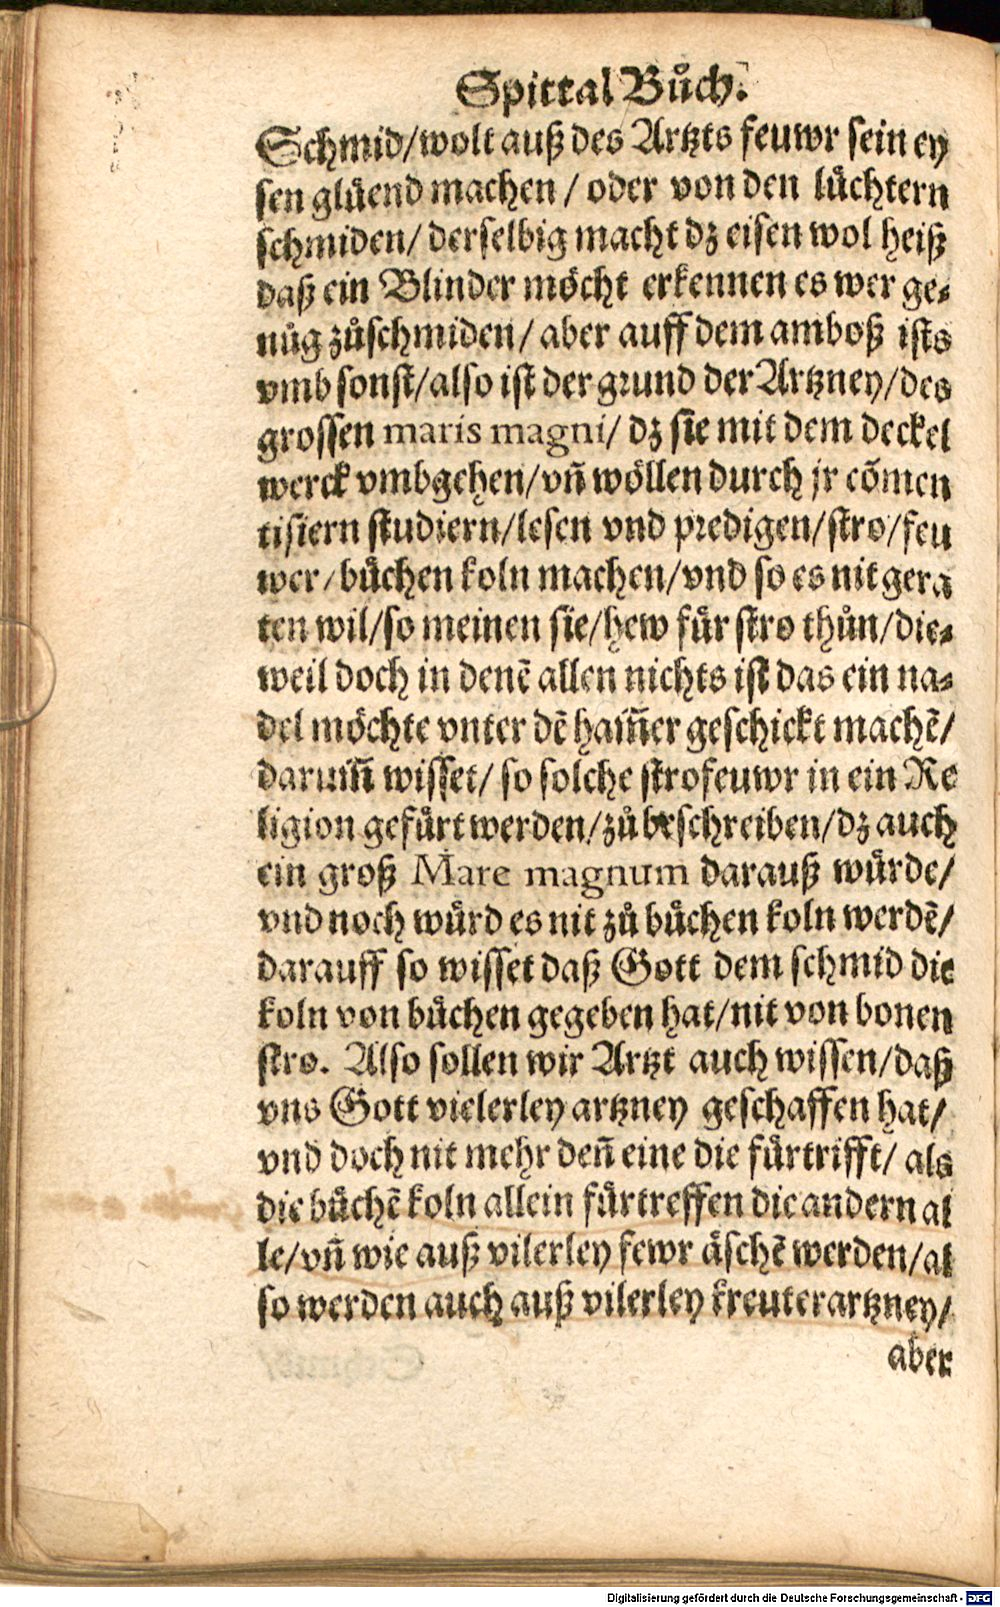 Spittal Bůch.
Schmid/wolt auß des Artzts feuwr sein ey
sen glüend machen / oder von den lüchtern
schmiden/ derselbig macht dz eisen wol heiß
daß ein Blinder möcht erkennen es wer ge⸗
nůg zůschmiden/ aber auff dem amboß ists
vmb sonst/also ist der grund der Artzney/des
grossen maris magni/ dz sie mit dem deckel
werck vmbgehen/vñ wöllen durch jr cōmen
tisiern studiern/lesen vnd predigen/stro/feu
wer/büchen koln machen/vnd so es nit gera
ten wil/so meinen sie/hew für stro thůn/die⸗
weil doch in denē allen nichts ist das ein na⸗
del möchte vnter dē ham̄er geschickt machē/
darum̄ wisset/ so solche strofeuwr in ein Re
ligion gefürt werden/zů beschreiben/dz auch
ein groß Mare magnum darauß würde/
vnd noch würd es nit zů büchen koln werdē/
darauff so wisset daß Gott dem schmid die
koln von büchen gegeben hat/nit von bonen
stro. Also sollen wir Artzt auch wissen/daß
vns Gott vielerley artzney geschaffen hat/
vnd doch nit mehr den̄ eine die fürtrifft/ als
die büchē koln allein fürtreffen die andern al
le/vñ wie auß vilerley fewr äschē werden/al
so werden auch auß vilerley kreuterartzney/
aber
Digitalisierung gefördert durch die Deutsche Forschungsgemeinschaft - DFG